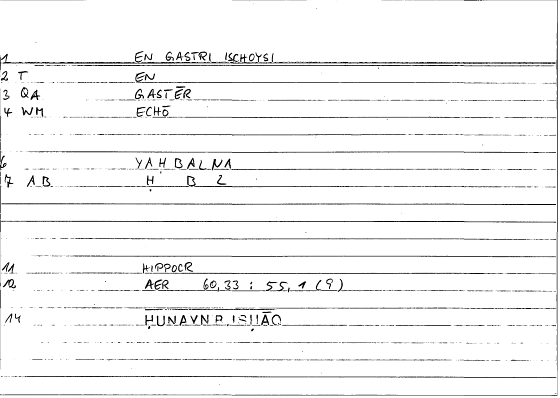 1 EN GASTRI ISCHOYSI
2 T EN
3 QA GASTĒR
4 WM ECHŌ
6 YAḤBALNA
7 AB Ḥ B L
11 HIPPOCR
12 AER 60,33 : 55,1 (9)
14